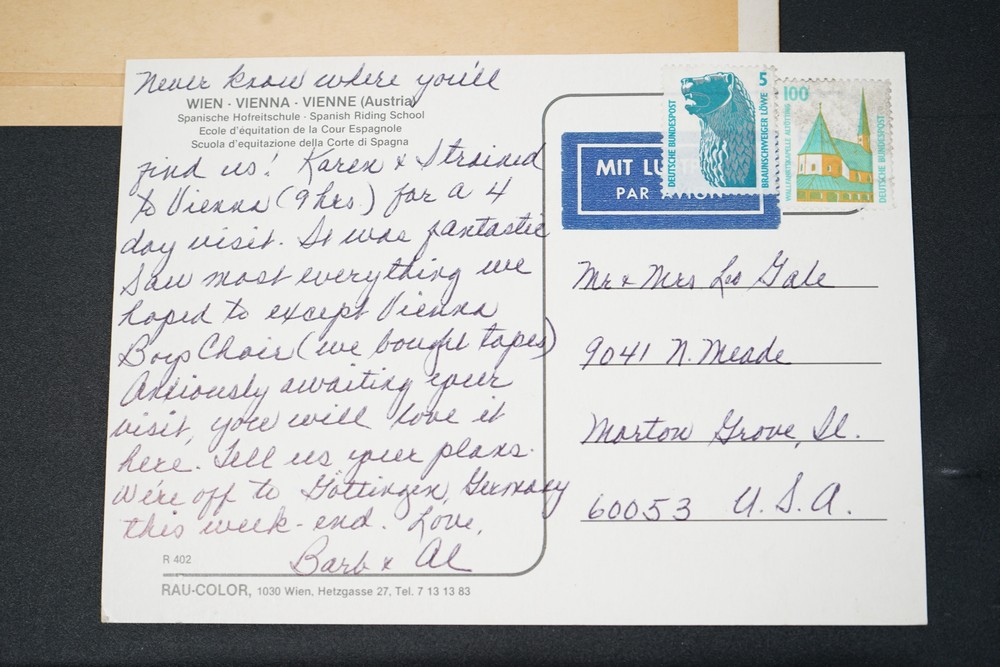 Never know where you'll
WIEN · VIENNA · VIENNE (Austria)
Spanische Hofreitschule · Spanish Riding School
Ecole d'équitation de la Cour Espagnole
Scuola d'equitazione della Corte di Spagna
find us! Karen & I trained
to Vienna (9 hrs.) for a 4
day visit. It was fantastic
Saw most everything we
hoped to except Vienna
Boys Choir (we bought tapes)
Anxiously awaiting your
visit, you will love it
here. Tell us your plans.
We're off to Göttingen, Germany
this week-end. Love,
Barb & Al
R 402
RAU-COLOR, 1030 Wien, Hetzgasse 27, Tel. 7 13 13 83
MIT LU
PAR AVION
DEUTSCHE BUNDESPOST
5
BRAUNSCHWEIGER LÖWE
100
WALLFAHRTSKAPELLE ALTÖTTING
DEUTSCHE BUNDESPOST
Mr & Mrs Leo Gale
9041 N. Meade
Morton Grove, Il.
60053 U.S.A.